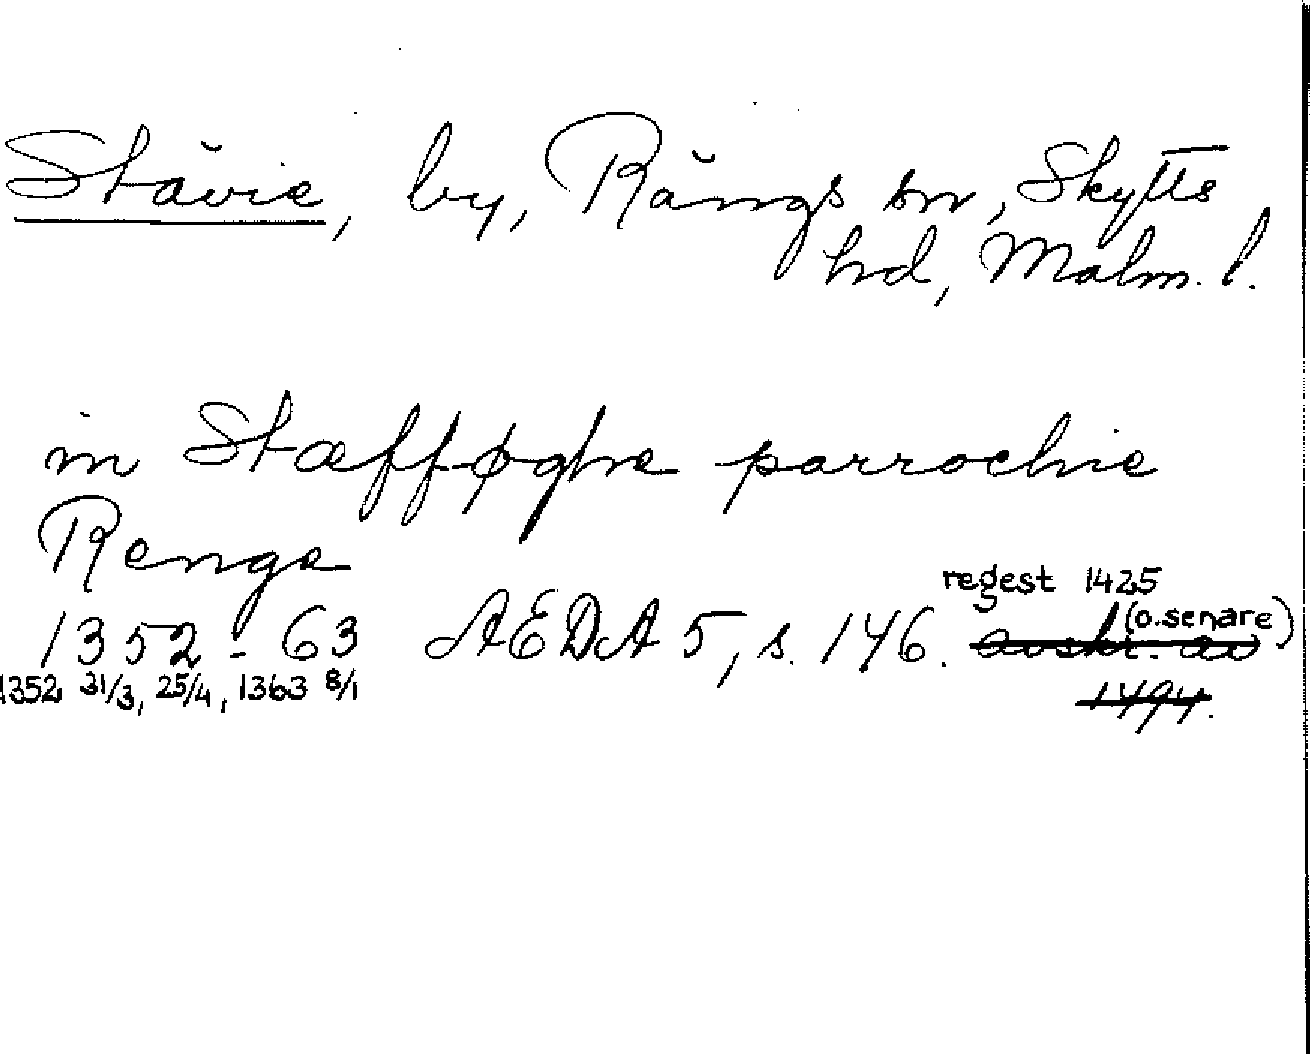 Stävie, by, Rängs sn, Skytts
hd, Malm. l.
in Stæfføghe parrochie
Renge
regest 1425
1352 - 63 AEDA 5, s. 146. avskr. av (o. senare)
1494.
1352 31/3, 25/4, 1363 8/1